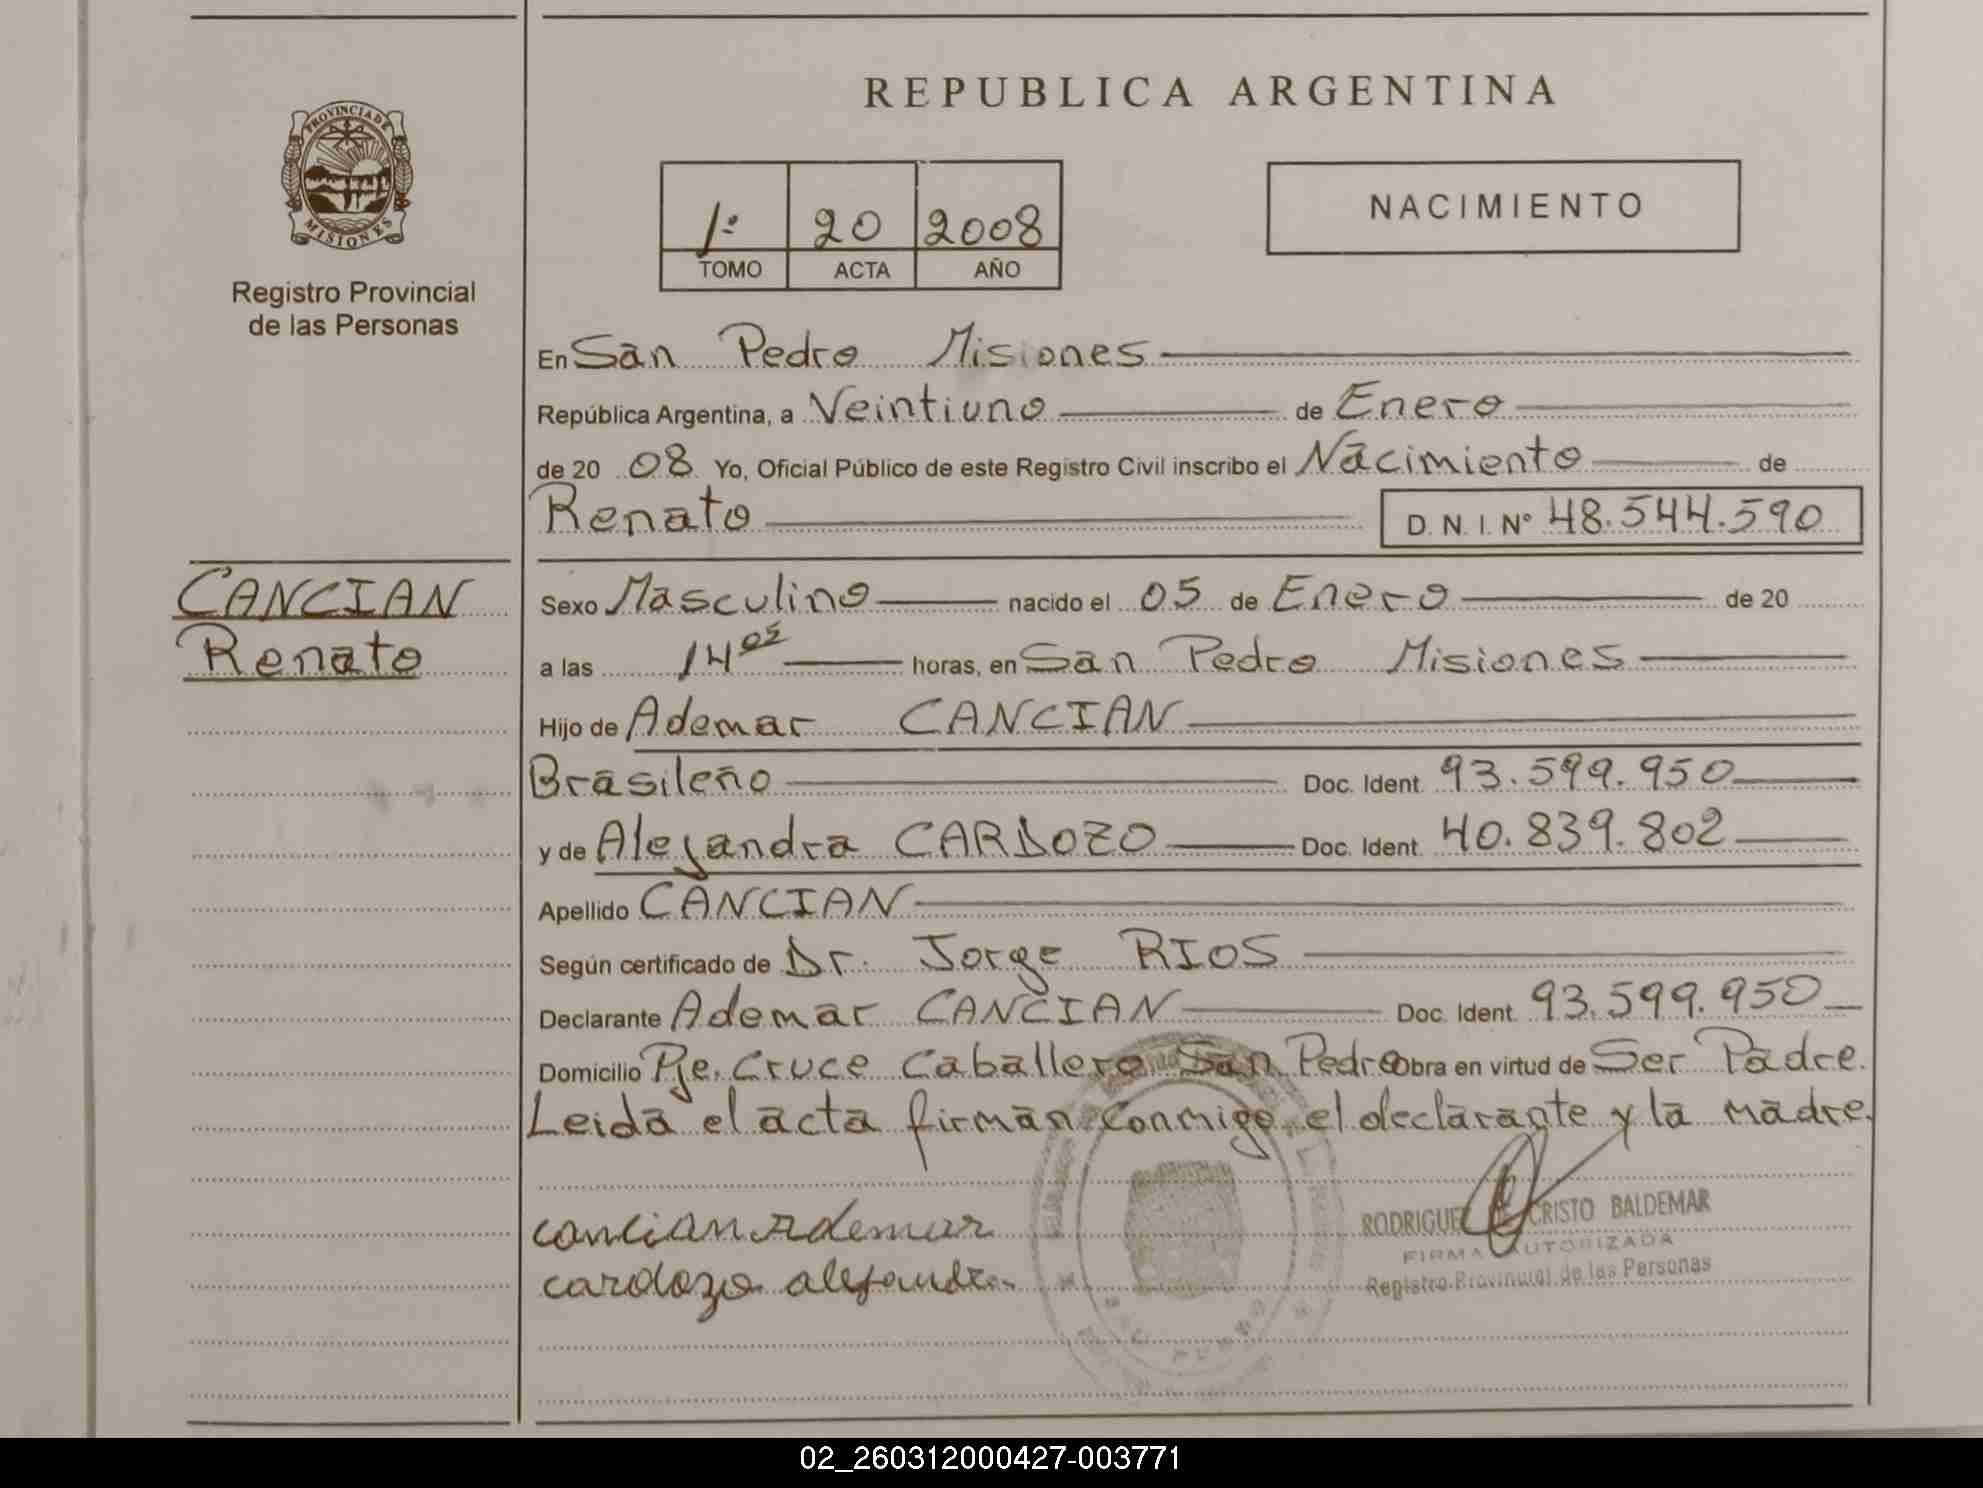 REPUBLICA ARGENTINA
PROVINCIA DE
MISIONES
Registro Provincial
de las Personas
1º 20 2008
TOMO ACTA AÑO
NACIMIENTO
En San Pedro Misiones
República Argentina, a Veintiuno de Enero
de 20 08 Yo, Oficial Público de este Registro Civil inscribo el Nacimiento de
Renato D. N. I. Nº 48.544.590
CANCIAN
Renato
Sexo Masculino nacido el 05 de Enero de 20
a las 14 05 horas, en San Pedro Misiones
Hijo de Ademar CANCIAN
Brasileño Doc. Ident. 93.599.950
y de Alejandra CARDOZO Doc. Ident. 40.839.802
Apellido CANCIAN
Según certificado de Dr. Jorge RIOS
Declarante Ademar CANCIAN Doc. Ident. 93.599.950
Domicilio Pje. Cruce Caballero San Pedro Obra en virtud de Ser Padre.
Leida el acta firman conmigo el declarante y la madre.
cancian Ademar
cardozo alejandra
RODRIGUEZ CRISTO BALDEMAR
FIRMA AUTORIZADA
Registro Provincial de las Personas
02_260312000427-003771